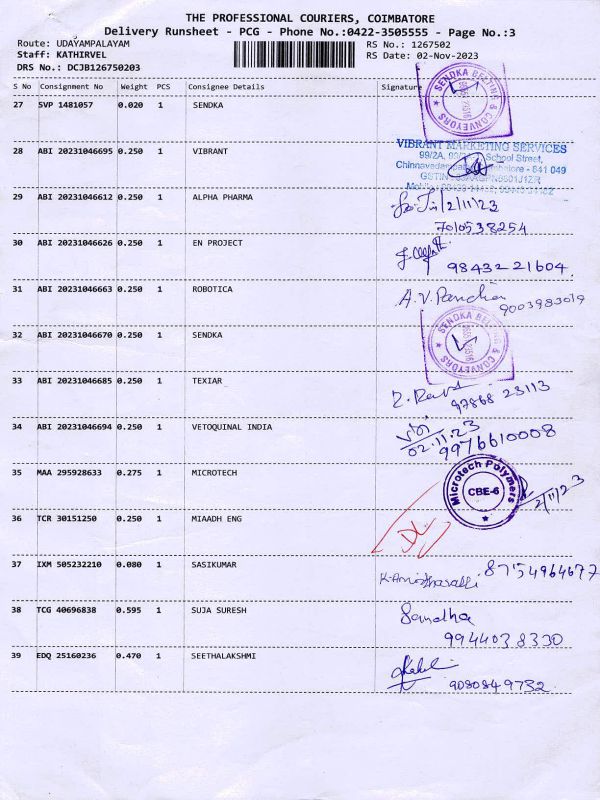 THE PROFESSIONAL COURIERS, COIMBATORE
Delivery Runsheet - PCG - Phone No.:0422-3505555 - Page No.:3
Route: UDAYAMPALAYAM RS No.: 1267502
Staff: KATHIRVEL RS Date: 02-Nov-2023
DRS No.: DCJB126750203
S No Consignment No Weight PCS Consignee Details Signature
27 SVP 1481057 0.020 1 SENDKA
SENDKA BELTING & CONVEYORS
28 ABI 20231046695 0.250 1 VIBRANT
VIBRANT MARKETING SERVICES
99/2A, School Street,
641 049
29 ABI 20231046612 0.250 1 ALPHA PHARMA
2/11/23
7010538254
30 ABI 20231046626 0.250 1 EN PROJECT
98432 21604
31 ABI 20231046663 0.250 1 ROBOTICA
A.V. 9003983019
32 ABI 20231046670 0.250 1 SENDKA
SENDKA BELTING & CONVEYORS
33 ABI 20231046685 0.250 1 TEXIAR
97868 23113
34 ABI 20231046694 0.250 1 VETOQUINAL INDIA
02.11.23
9976610008
35 MAA 295928633 0.275 1 MICROTECH
Microtech Polymers
CBE-6
2/11/23
36 TCR 30151250 0.250 1 MIAADH ENG
DL
37 IXM 505232210 0.080 1 SASIKUMAR
8754964677
38 TCG 40696838 0.595 1 SUJA SURESH
Sandha
9944038330
39 EDQ 25160236 0.470 1 SEETHALAKSHMI
9080849732